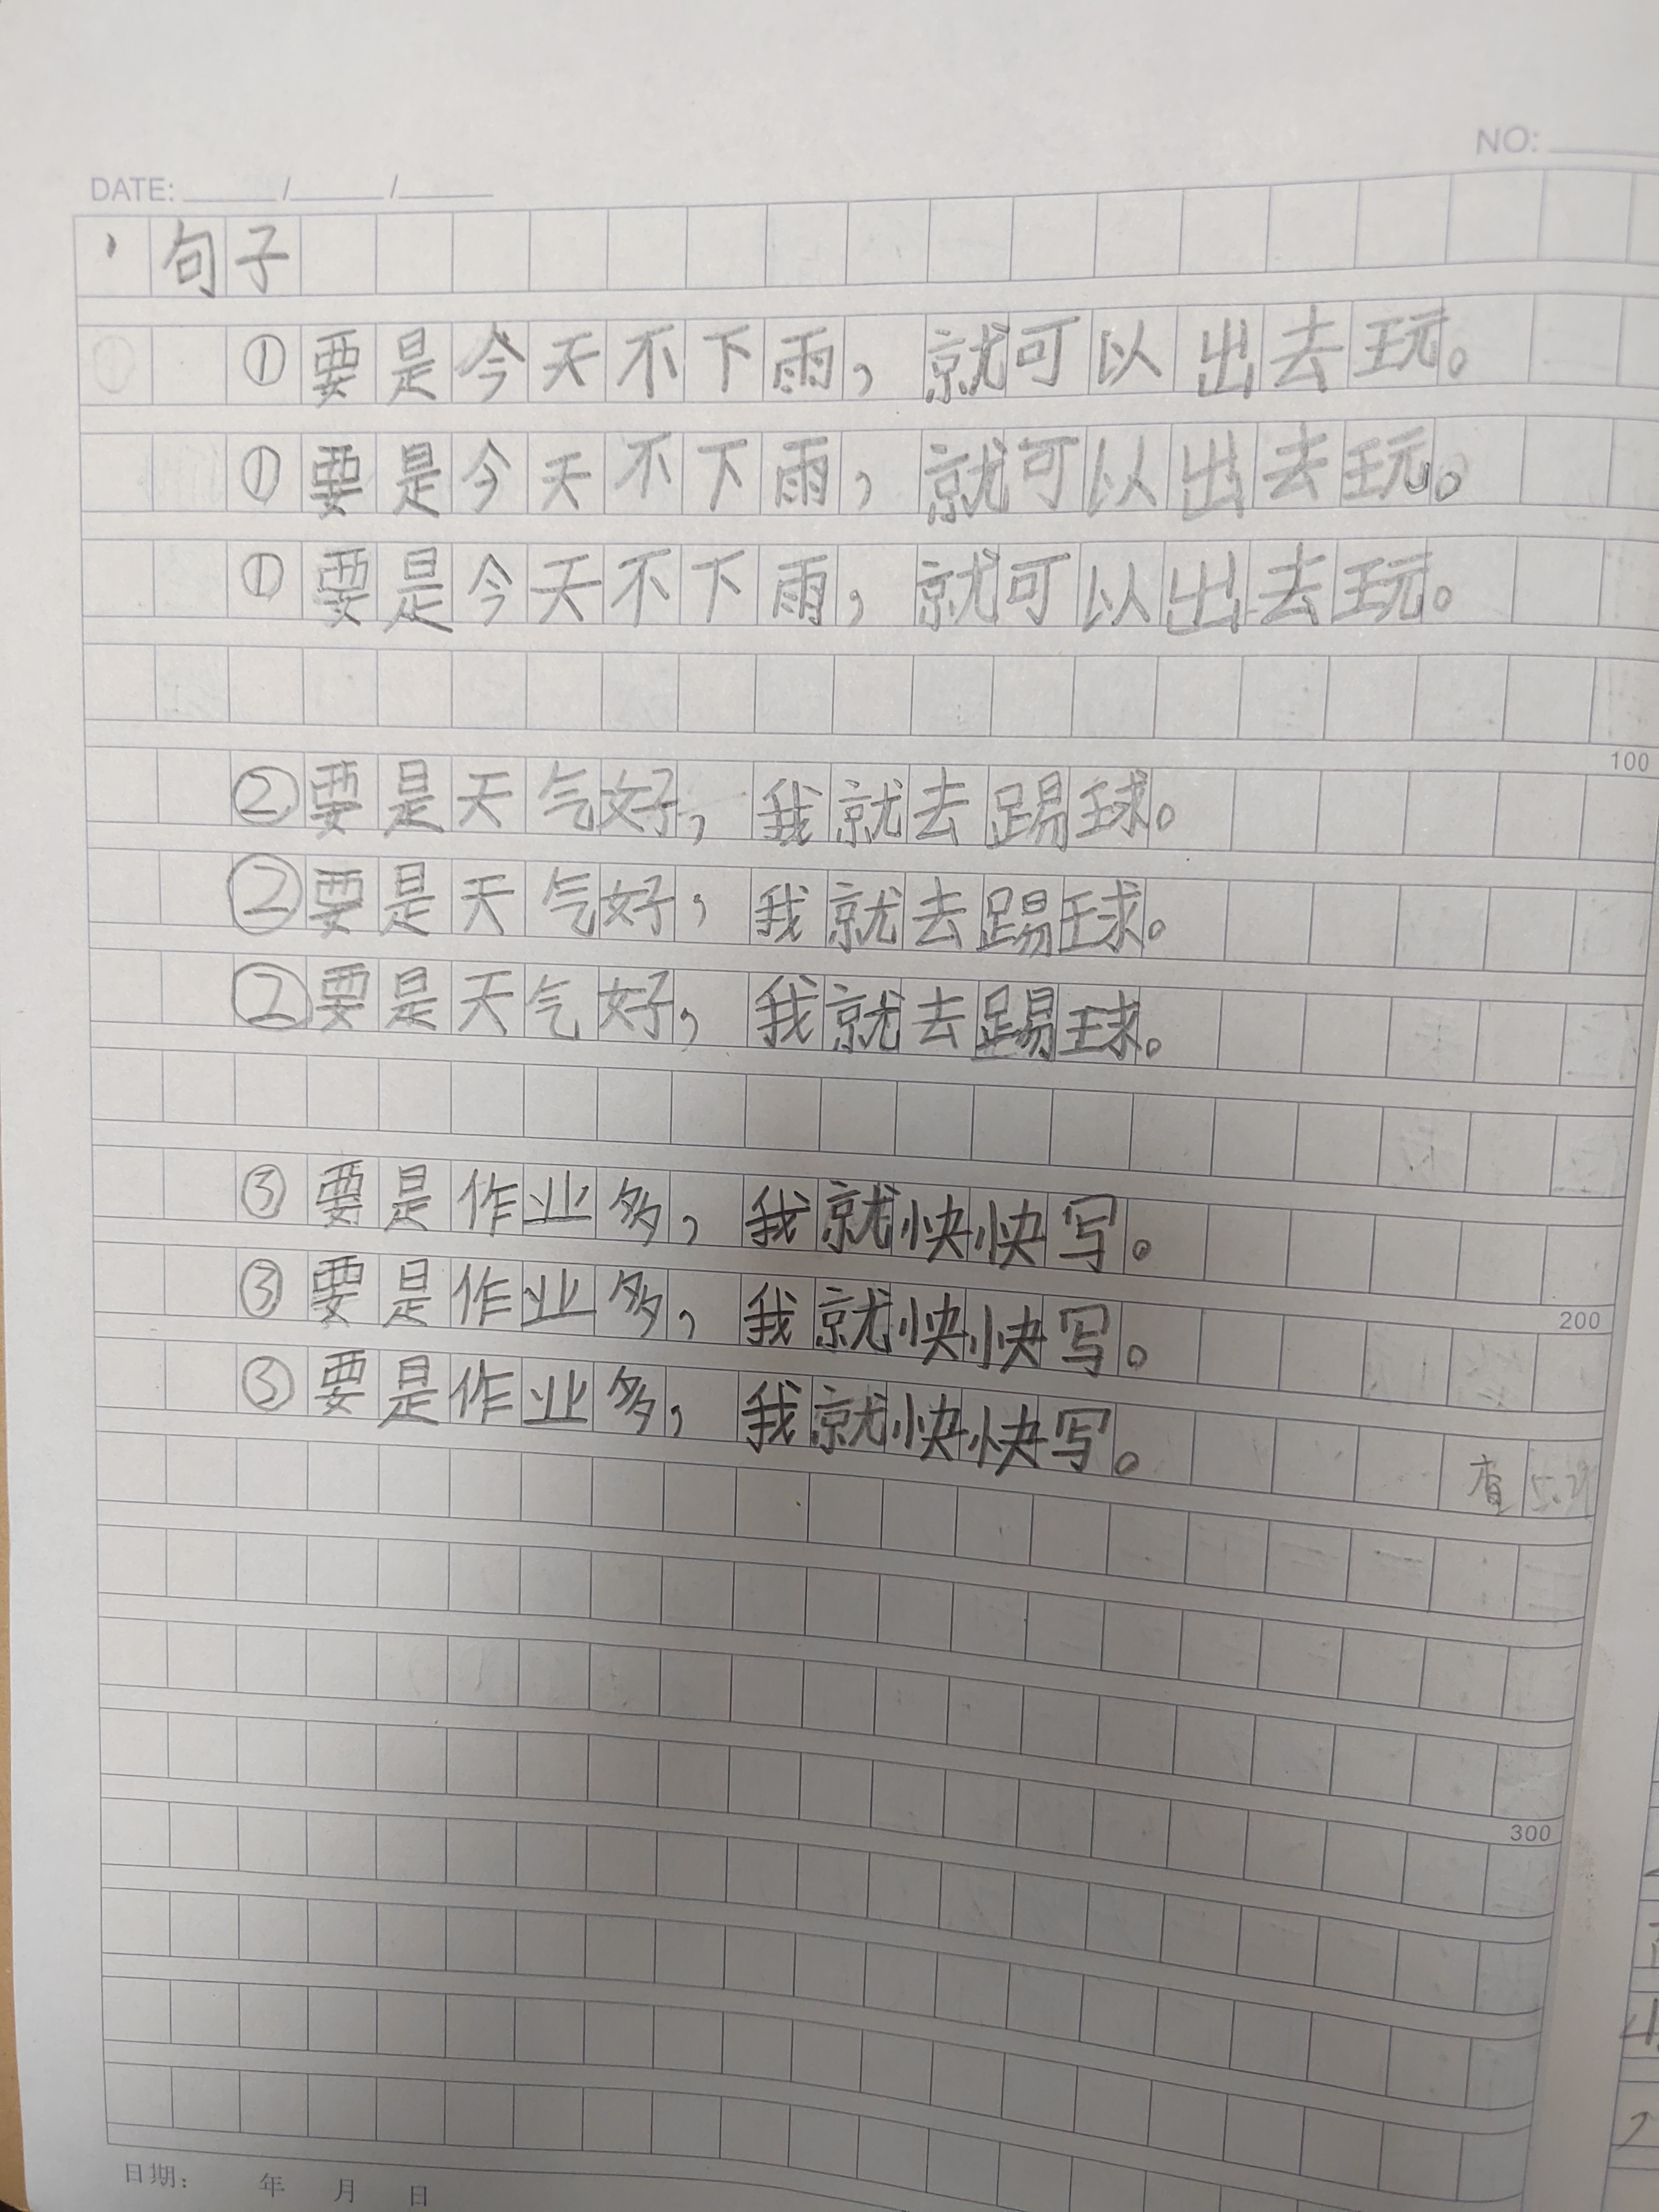 NO:
DATE: / /
、句子
①要是今天不下雨，就可以出去玩。
①要是今天不下雨，就可以出去玩。
①要是今天不下雨，就可以出去玩。
100
②要是天气好，我就去踢球。
②要是天气好，我就去踢球。
②要是天气好，我就去踢球。
③要是作业多，我就快快写。
③要是作业多，我就快快写。
200
③要是作业多，我就快快写。
查
300
日期： 年 月 日